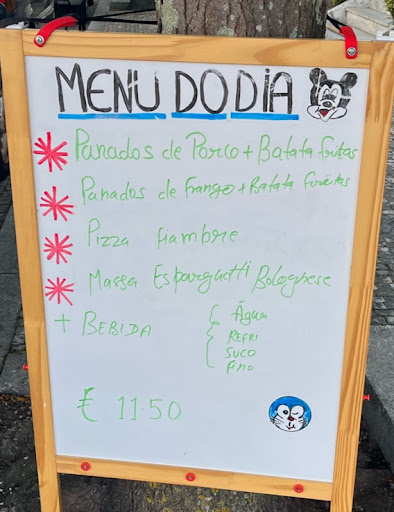 MENÜ DO DIA
Panados de Porco + Batata fritas
Panados de frango + Batata fritas
Pizza fiambre
Massa Esparguetti Bolognese
+ BEBIDA { Água
REFRI
SUCO
fino
€ 11.50